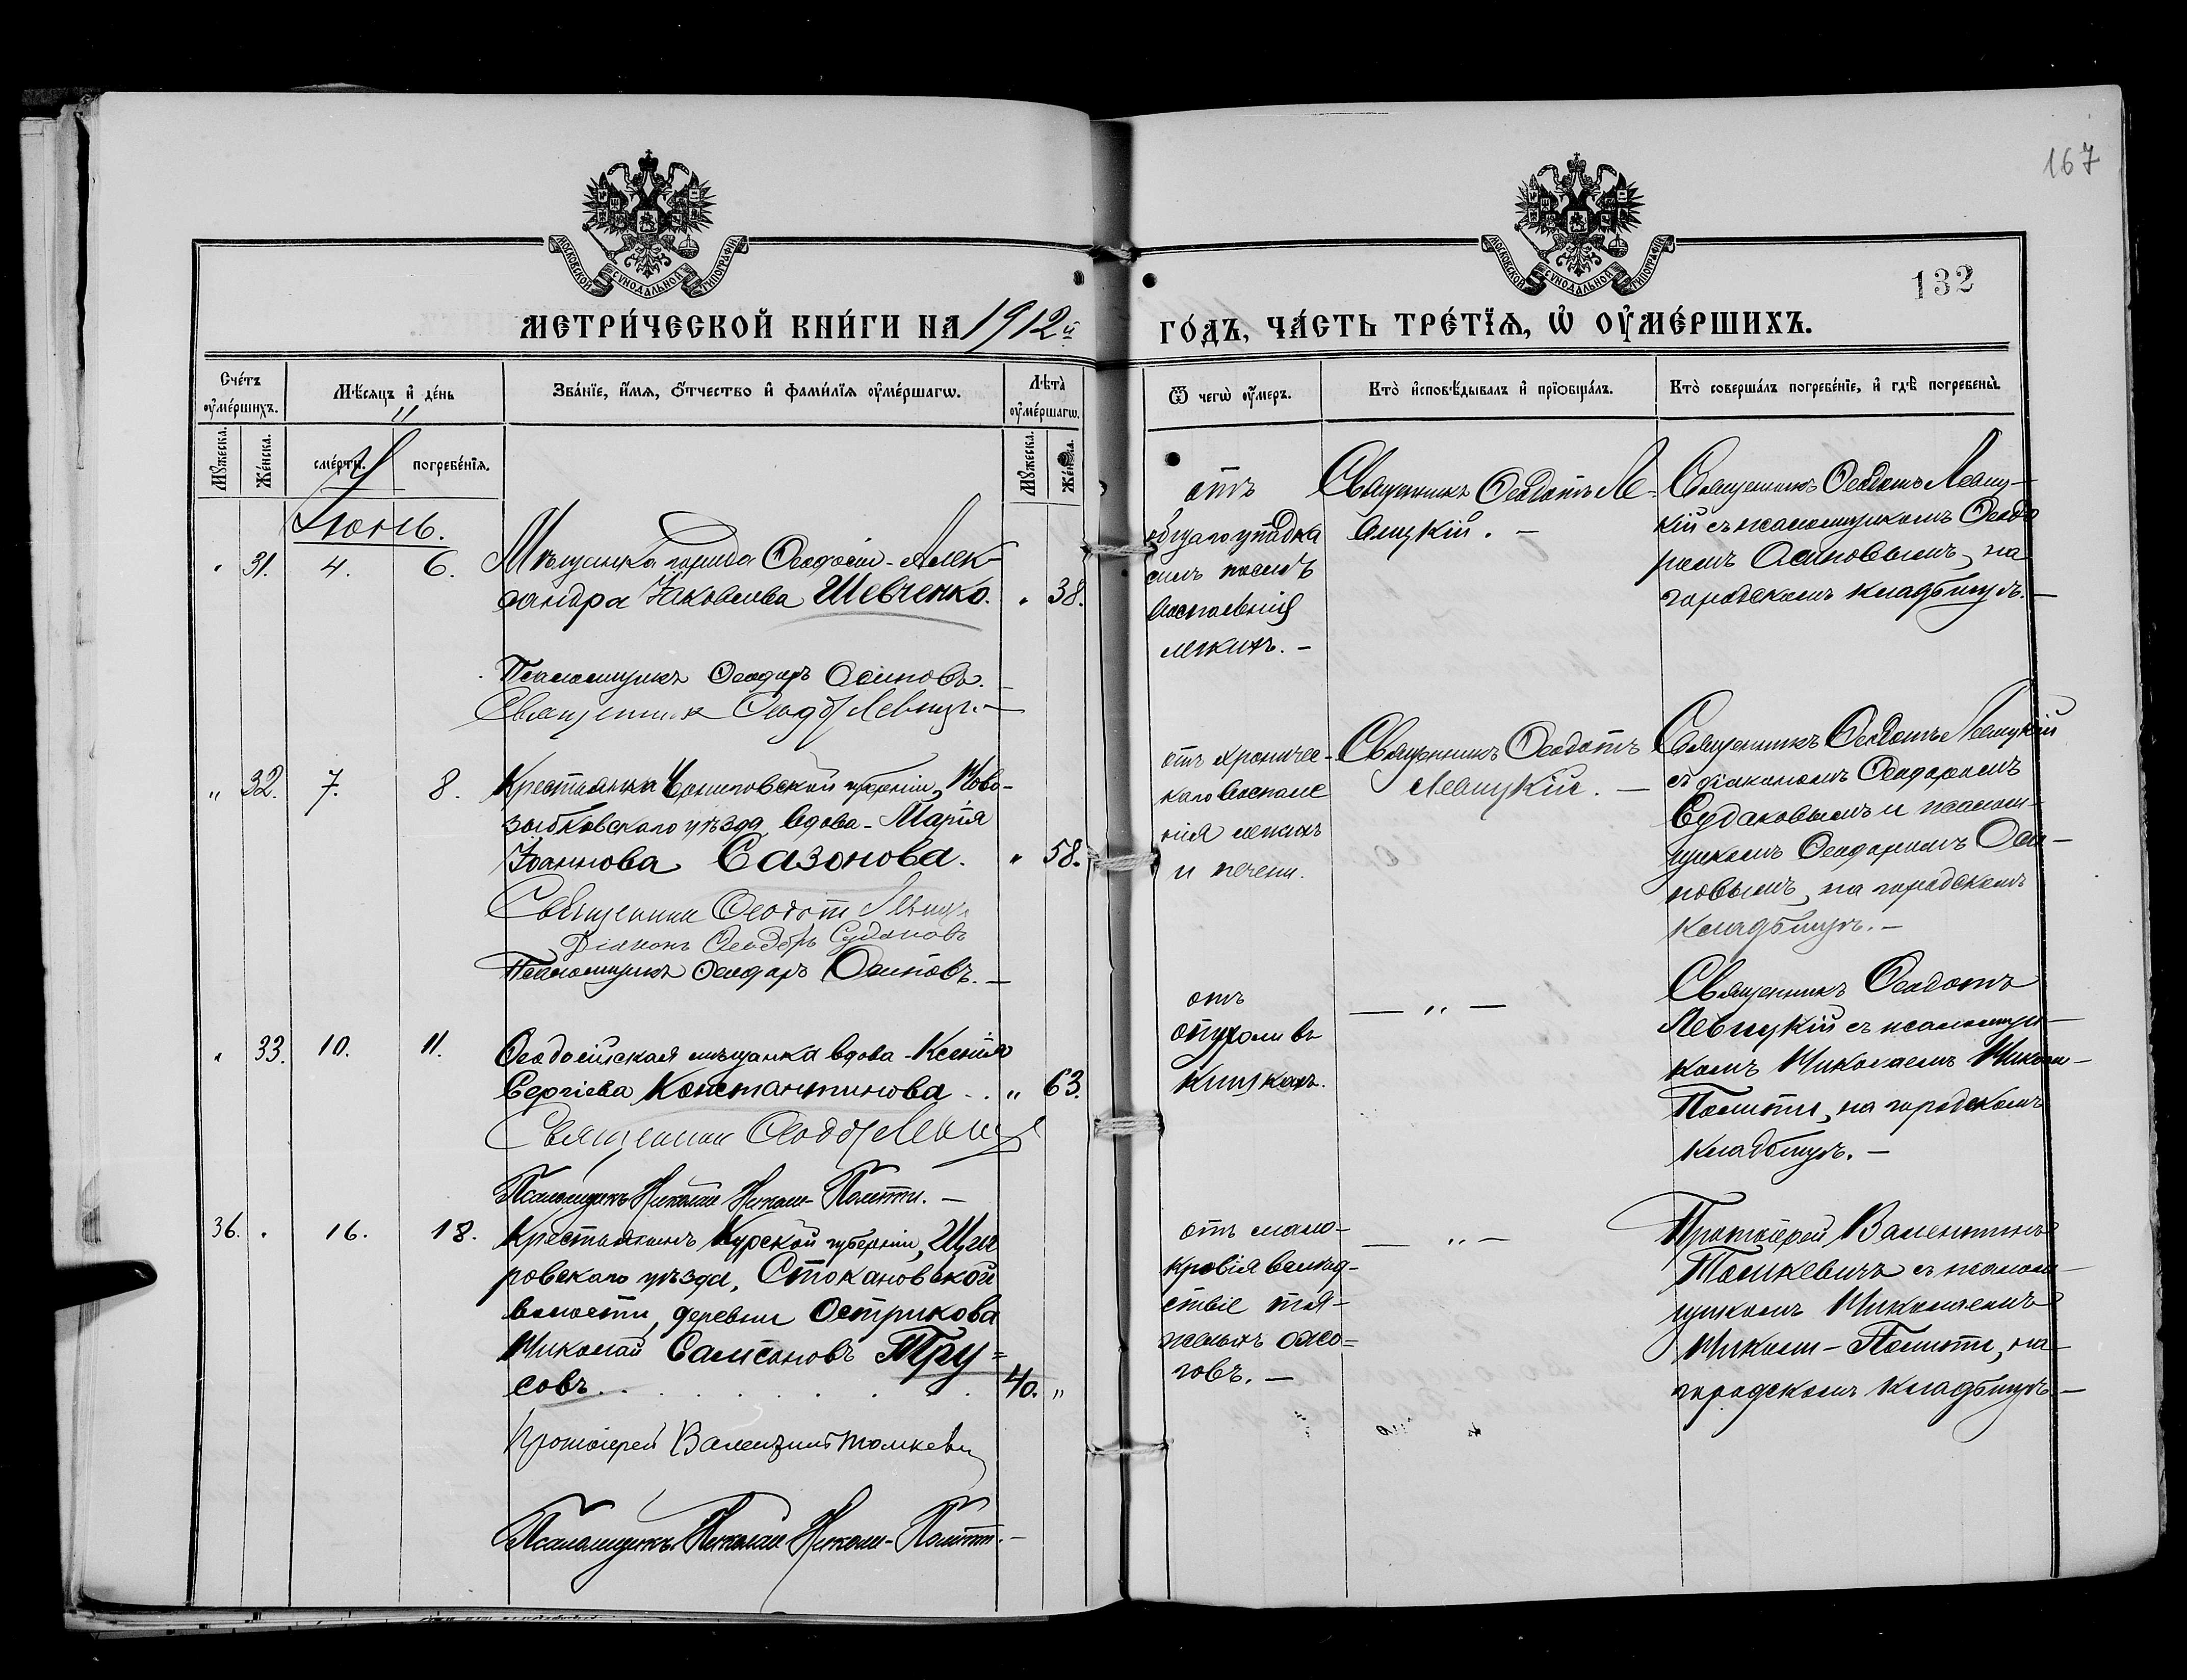 167
132
МОСКОВСКОЙ СѴНОДАЛЬНОЙ ТИПОГРАФІИ
МОСКОВСКОЙ СѴНОДАЛЬНОЙ ТИПОГРАФІИ
МЕТРИ́ЧЕСКОЙ КНИ́ГИ НА 1912й
ГО́ДЪ, ЧА́СТЬ ТРЕ́ТЇѦ, Ѡ҆ ОУ҆МЕ́РШИХЪ.
Сче́тъ оу҆ме́ршихъ.
Мѣ́сѧцъ и҆ де́нь
Зва́нїе, и҆́мѧ, ѻ҆́тчество и҆ фами́лїѧ оу҆ме́ршагѡ.
Лѣ́та оу҆ме́ршагѡ.
Ѿ чегѡ̀ оу҆́меръ.
Кто̀ и҆сповѣ́дывалъ и҆ прїѡбща́лъ.
Кто̀ соверша́лъ погребе́нїе, и҆ гдѣ̀ погребены̀.
Мꙋ́жеска.
Же́нска.
сме́рти.
погребе́нїѧ.
Мꙋ́жеска.
Же́нска.
Іюнь.
" 31. 4. 6. Мѣщанка города Ѳеодосіи - Алек-
сандра Іаковлева Шевченко. " 38.
Псаломщикъ Ѳеодоръ Осиповъ. —
Священник Ѳеод Левиц —
отъ
общаго упадка
силъ послѣ
воспаленія
легкихъ. —
Священникъ Ѳеодотъ Ле-
вицкій. —
Священникъ Ѳеодотъ Левиц-
кій съ псаломщикомъ Ѳеодо
ромъ Осиповымъ, на
городскомъ кладбищѣ. —
" 32. 7. 8. Крестьянка Черниговской губерніи, Ново-
зыбковскаго уѣзда, вдова - Марія
Іоаннова Сазонова. " 58.
Священник Ѳеодот Левиц
Діаконъ Ѳеодоръ Судаковъ
Псаломщикъ Ѳеодоръ Осиповъ. —
отъ хроничес-
каго воспале
нія легкихъ
и печени.
Священникъ Ѳеодотъ
Левицкій. —
Священникъ Ѳеодотъ Левицкій
съ діакономъ Ѳеодоромъ
Судаковымъ и псалом-
щикомъ Ѳеодоромъ Оси-
повымъ, на городскомъ
кладбищѣ. —
" 33. 10. 11. Ѳеодосійская мѣщанка вдова - Ксенія
Сергіева Константинова . " 63.
Священник Ѳеодо Левиц
Псаломщикъ Николай Николи-Полити. —
отъ
опухоли въ
кишкахъ.
— " —
Священникъ Ѳеодотъ
Левицкій съ псаломщи-
комъ Николаемъ Николи-
Полити, на городскомъ
кладбищѣ. —
36. " 16. 18. Крестьянинъ Курской губерніи, Щиг
ровскаго уѣзда, Стокановской
волости, деревни Острикова
Николай Самсоновъ Тру=
совъ. . . . . . . . . 40. "
Протоіерей Валентин Томкевич
Псаломщикъ Николай Николи-Полити. —
отъ мало-
кровія вслѣд-
ствіе тя-
желыхъ ожо=
говъ. —
— " —
Протоіерей Валентинъ
Томкевичъ съ псалом-
щикомъ Николаемъ
Николи-Полити, на
городскомъ кладбищѣ. —